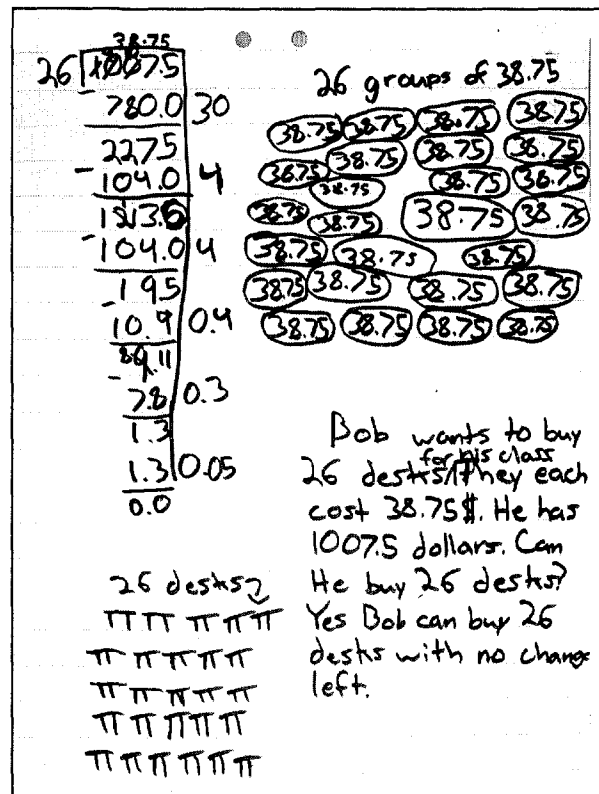 38.75
26 1007.5
- 780.0 30
227.5
- 104.0 4
123.5
- 104.0 4
19.5
10.4 0.4
9.1
- 7.8 0.3
1.3
1.3 0.05
0.0
26 groups of 38.75
38.75 38.75 38.75 38.75
38.75 38.75 38.75
36.75 38.75 38.75 36.75
38.75 38.75 38.75 38.75
38.75 38.75 38.75
38.75 38.75 38.75 38.75
38.75 38.75 38.75 38.75
Bob wants to buy
for his class
26 desks/They each
cost 38.75$. He has
1007.5 dollars. Can
He buy 26 desks?
Yes Bob can buy 26
desks with no change
left.
26 desks